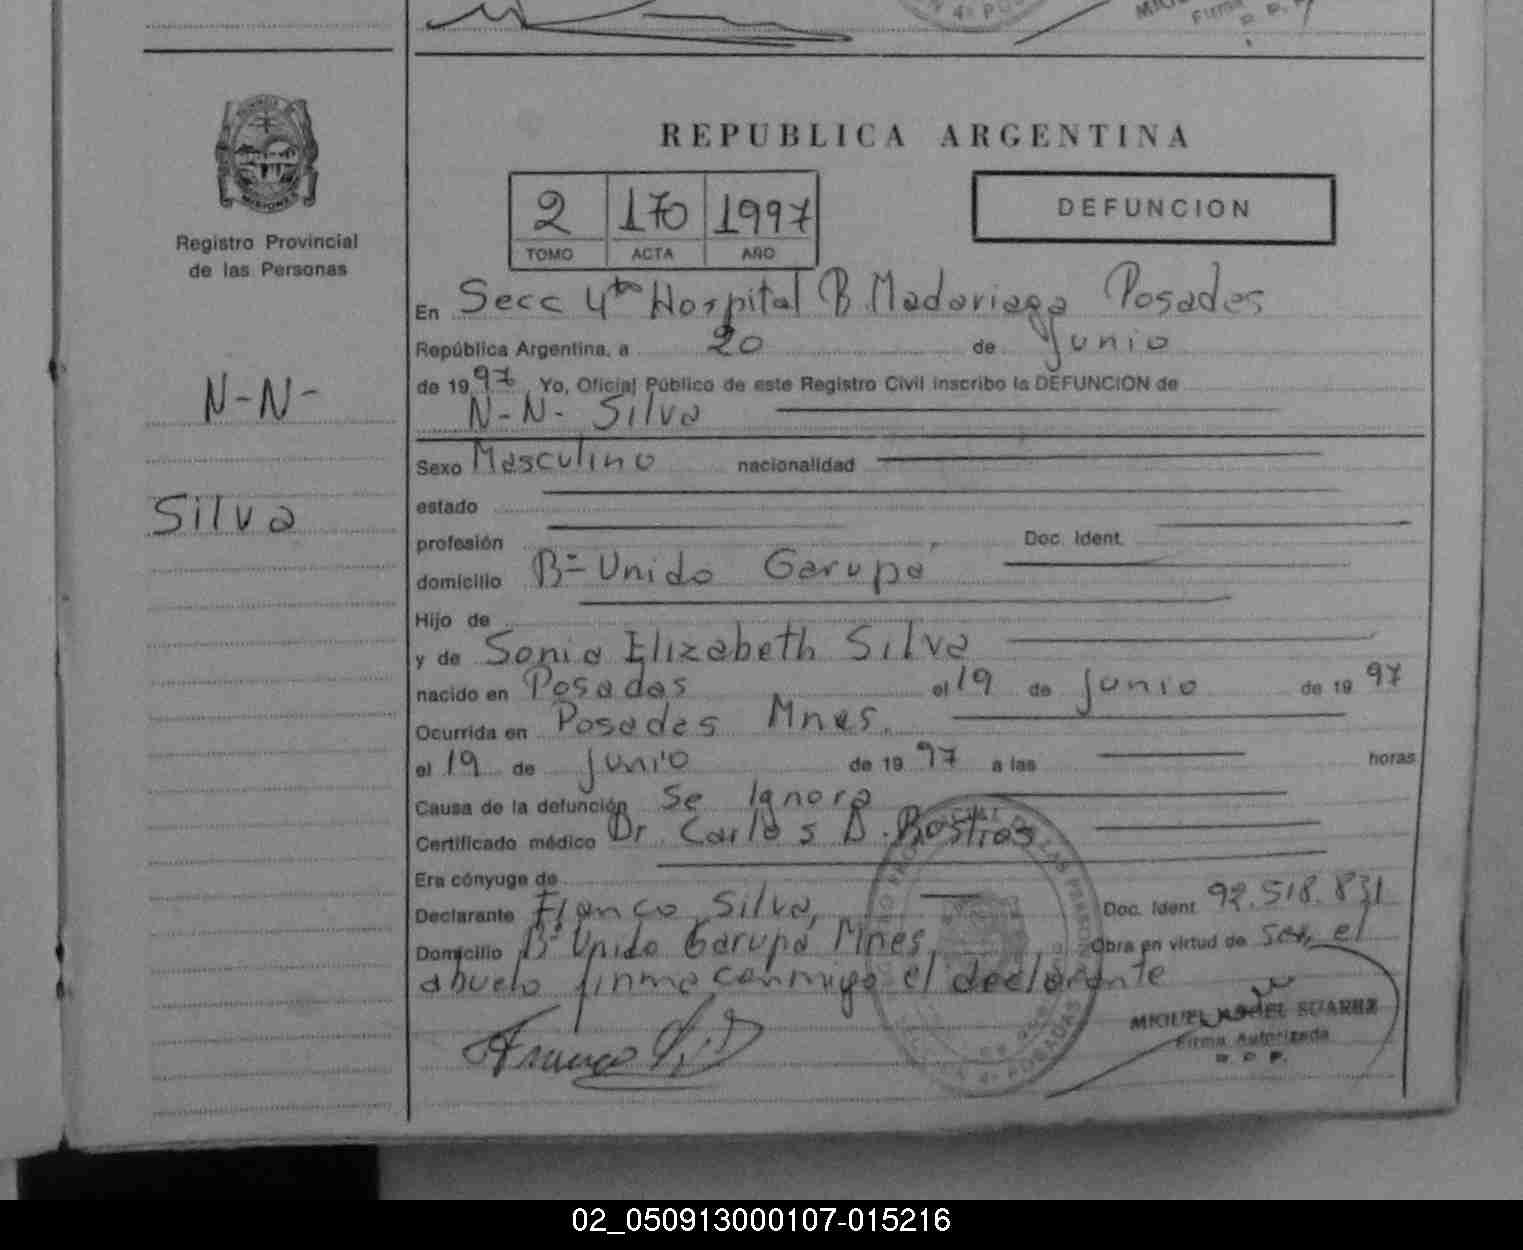 N 4ª POS
Firma
REPUBLICA ARGENTINA
2 170 1997
TOMO ACTA AÑO
DEFUNCION
MISIONES
Registro Provincial
de las Personas
En Secc 4ta Hospital R. Madariaga Posadas
República Argentina, a 20 de Junio
de 1997 Yo, Oficial Público de este Registro Civil inscribo la DEFUNCION de
N-N- Silva
N-N-
Silva
Sexo Masculino nacionalidad
estado
profesión Doc. Ident.
domicilio Bº Unido Garupá
Hijo de
y de Sonia Elizabeth Silva
nacido en Posadas el 19 de Junio de 1997
Ocurrida en Posadas Mnes.
el 19 de Junio de 1997 a las horas
Causa de la defunción Se Ignora
Certificado médico Dr. Carlos D.
Era cónyuge de
Declarante Franco Silva, Doc. Ident 92.518.831
Domicilio Bº Unido Garupá Mnes, Obra en virtud de ser el
abuelo firma conmigo el declarante
Franco
MIGUEL ANGEL SUAREZ
Firma Autorizada
R. P. P.
DE LAS PERSONAS
SECCION 4ª POSADAS
02_050913000107-015216